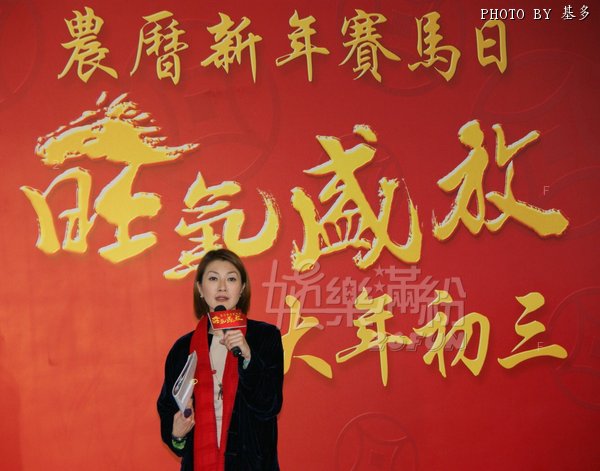 PHOTO BY 基多
農曆新年賽馬日
旺氣盛放
大年初三
娛樂滿紛
26FUN